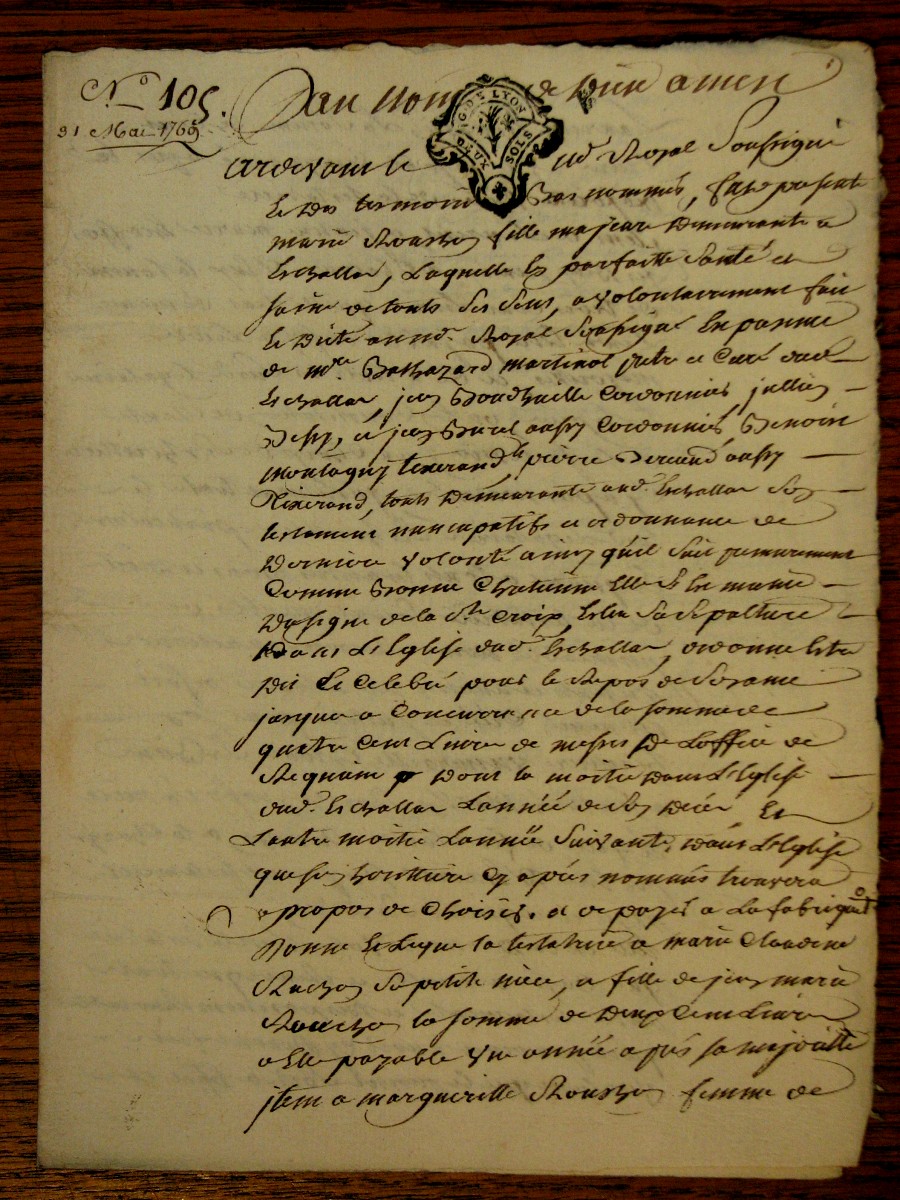 N.º 105.
31 Mai 1769
Au nom de Dieu amen
G. DE LYON
DEUX SOLS
Pardevant le Royal Soussigné
Et des temoins bas nommés, fut presente
marie fille majeure Demeurante a
Eschallas, Laquelle En parfaitte Santé et
saine de touts ses sens, a volontairement fait
et dicté aud. Royal Soussigné En presence
de m.re Balthazard martinol pretre et Curé dud.
Eschallas, jean Cordonnier, jullien
et jean aussy Cordonnier, Benoist
montagny tixerand, pierre aussy
Tixerand, touts Demeurants aud. Eschallas Son
testament nuncupatifs et ordonnance de
Derniere volonté ainsy qu'il suit premierement
Comme Bonne Chretienne Elle s'est munie
Du signe de la S.te Croix, Eslu Sa Sepulture
Dans L'Eglise dud. Eschallas, ordonne Estre
Dit Et Celebré pour le Repos de Son ame
jusques a Concurrance de la somme de
quatre Cent Livres de messes De L'office de
Requiem Dont la moitié Dans L'Eglise
dud. Eschallas L'année de Son Décés Et
L'autre moitié L'année Suivante, Dans L'Eglise
que son heritiere Cy aprés nommés trouvera
a propos de Choisir. et de payer a La fabrique
Donne Et Legue la testatrice a marie Claudine
Sa petite niece, a fille de jean marie
la somme de Deux Cent Livres
a Elle payable Une année aprés sa majorité
jtem a margueritte femme de